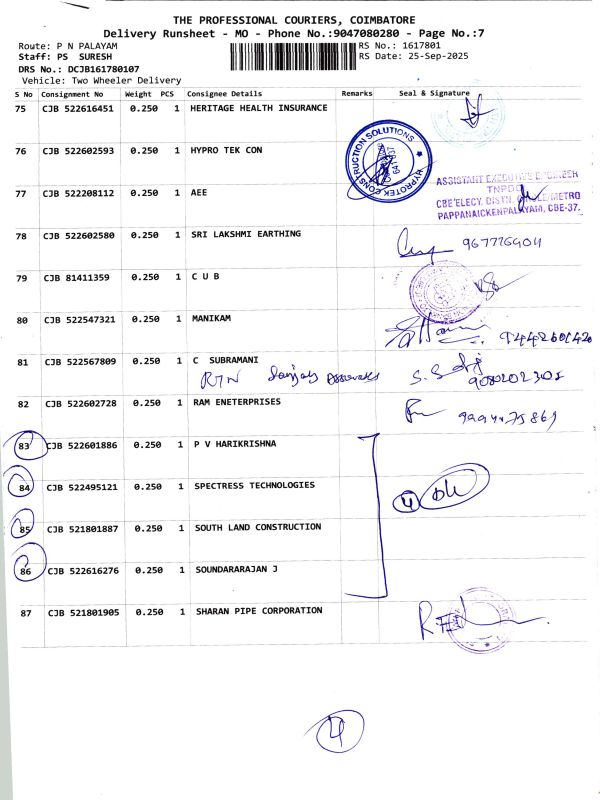 THE PROFESSIONAL COURIERS, COIMBATORE
Delivery Runsheet - MO - Phone No.:9047080280 - Page No.:7
Route: P N PALAYAM RS No.: 1617801
Staff: PS SURESH RS Date: 25-Sep-2025
DRS No.: DCJB161780107
Vehicle: Two Wheeler Delivery
S No Consignment No Weight PCS Consignee Details Remarks Seal & Signature
75 CJB 522616451 0.250 1 HERITAGE HEALTH INSURANCE
76 CJB 522602593 0.250 1 HYPRO TEK CON
HYPROTEK CONSTRUCTION SOLUTIONS
77 CJB 522208112 0.250 1 AEE
ASSISTANT EXECUTIVE ENGINEER
TNPDCL
CBE ELECY. DISTN. CIRCLE/METRO
PAPPANAICKENPALAYAM, CBE-37.
78 CJB 522602580 0.250 1 SRI LAKSHMI EARTHING
79 CJB 81411359 0.250 1 C U B
80 CJB 522547321 0.250 1 MANIKAM
81 CJB 522567809 0.250 1 C SUBRAMANI
RTN Sanjay
82 CJB 522602728 0.250 1 RAM ENETERPRISES
83 CJB 522601886 0.250 1 P V HARIKRISHNA
84 CJB 522495121 0.250 1 SPECTRESS TECHNOLOGIES
4
85 CJB 521801887 0.250 1 SOUTH LAND CONSTRUCTION
86 CJB 522616276 0.250 1 SOUNDARARAJAN J
87 CJB 521801905 0.250 1 SHARAN PIPE CORPORATION
4